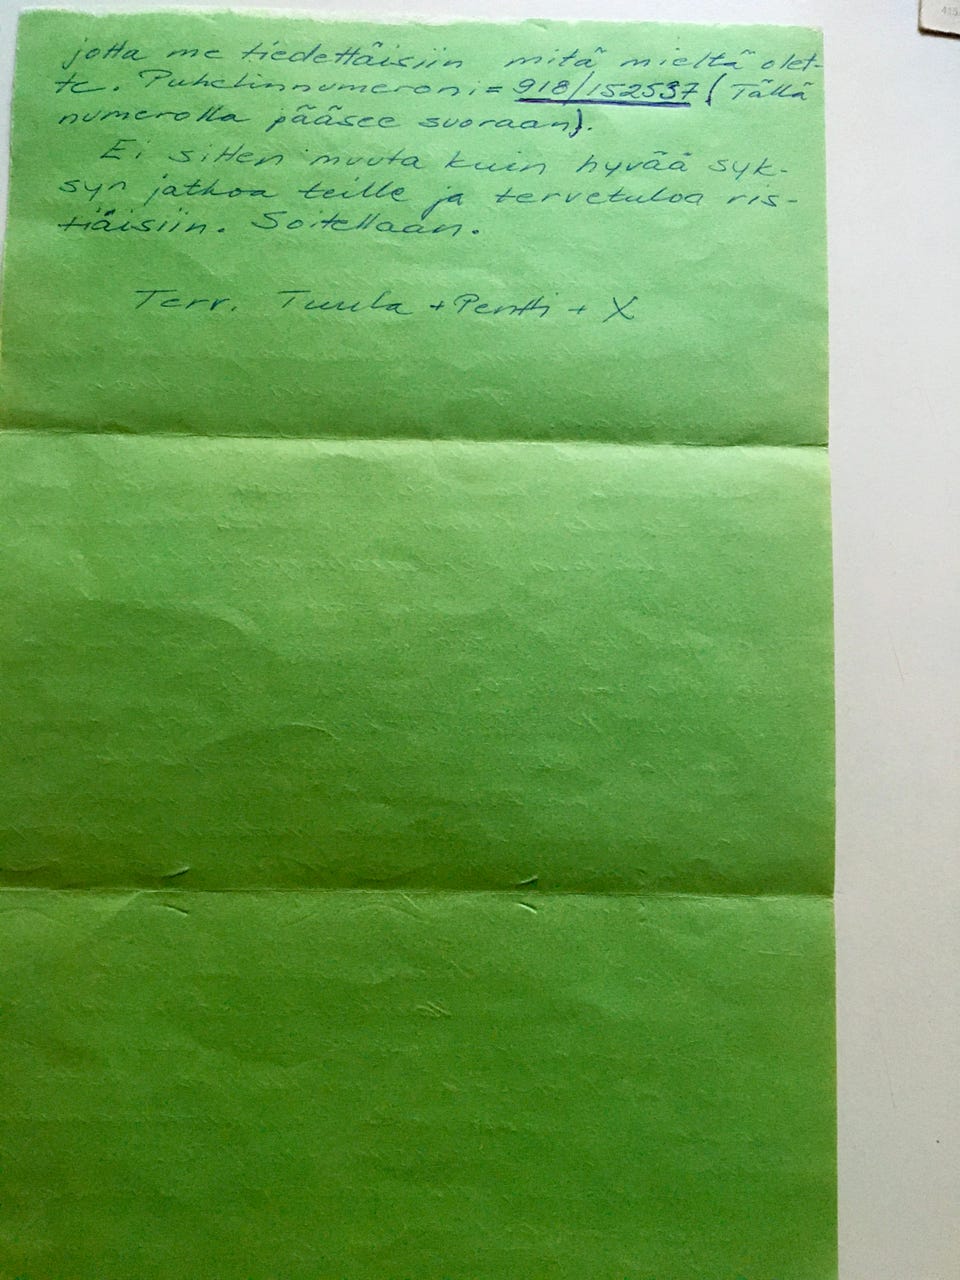 jotta me tiedettäisiin mitä mieltä olet-
te. Puhelinnumeroni = 918/152537 (Tällä
numerolla pääsee suoraan).
Ei sitten muuta kuin hyvää syk-
syn jatkoa teille ja tervetuloa ris-
tiäisiin. Soitellaan.
Terv. Tuula + Pentti + X